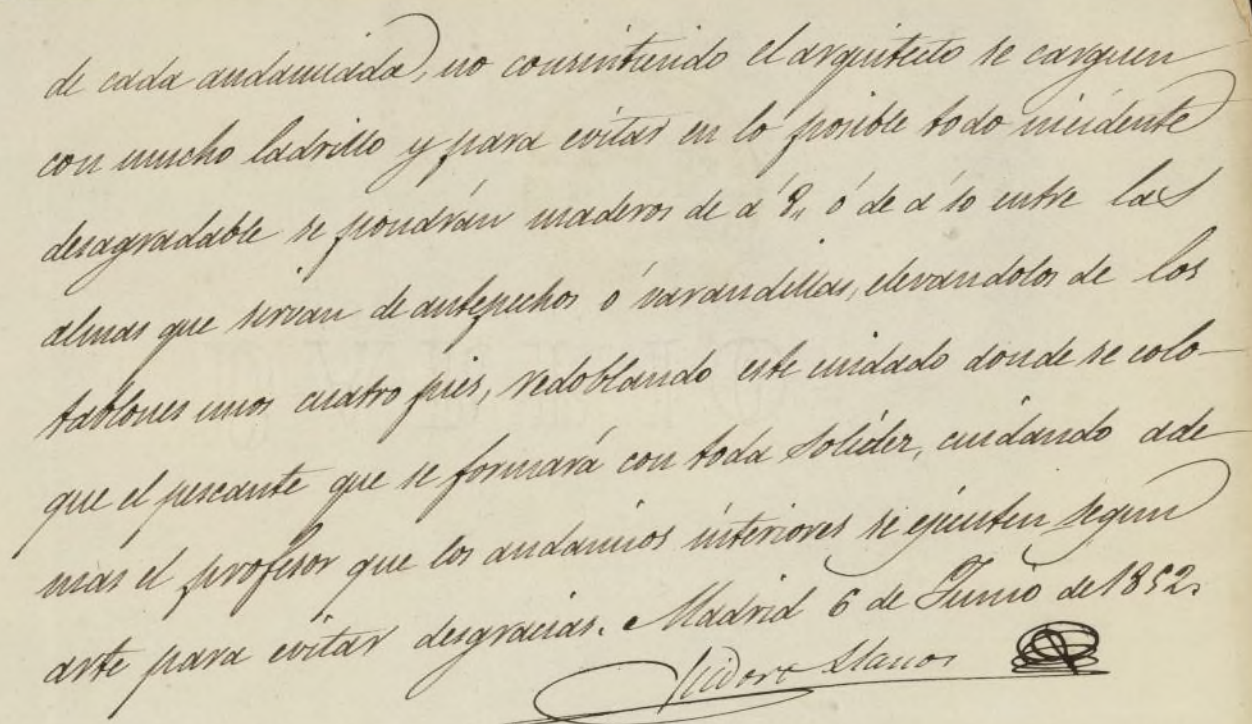 de cada andamiada, no consintiendo el arquitecto se carguen
con mucho ladrillo y para evitar en lo posible todo incidente
desagradable se pondrán maderos de á 8, ó de á 10 entre las
almas que sirvan de antepechos ó varandillas, elevandolos de los
tablones unos cuatro pies, redoblando este cuidado donde se colo-
que el pescante que se formará con toda solidez, cuidando ade
mas el profesor que los andamios interiores se ejecuten segun
arte para evitar desgracias. Madrid 6 de Junio de 1852.
Isidoro Llanos